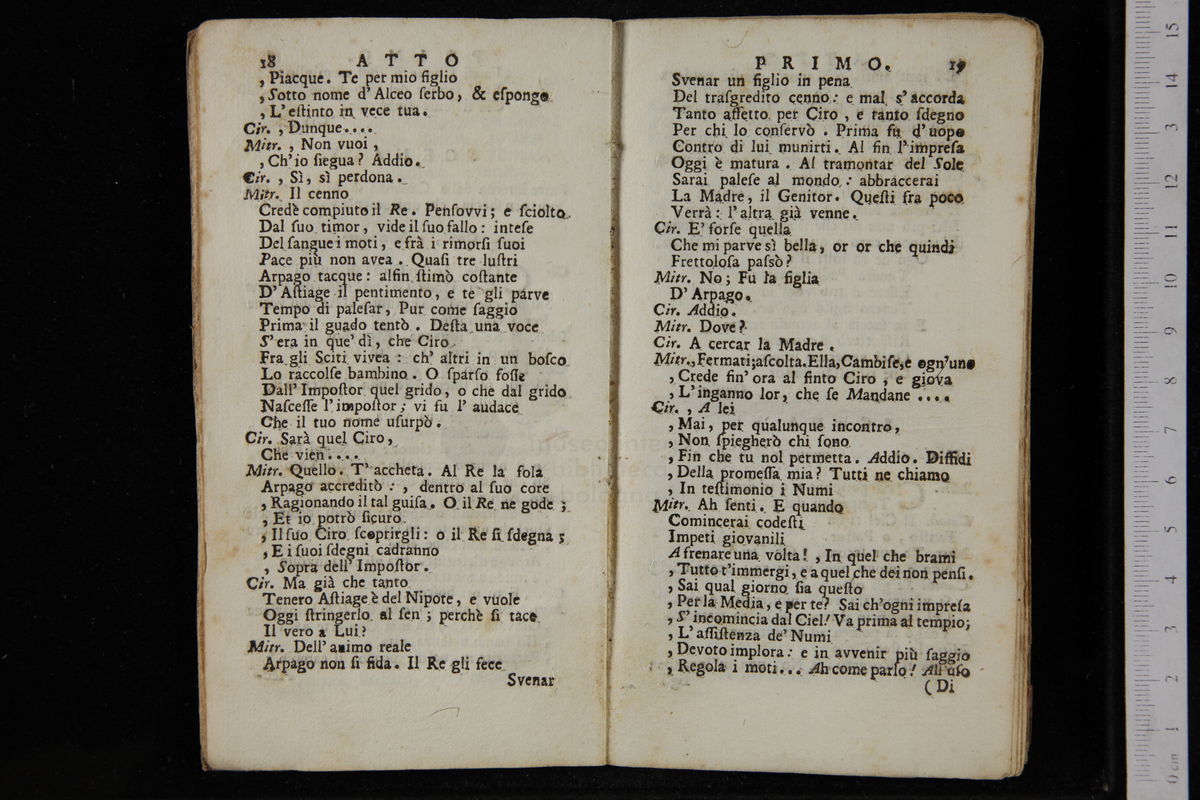 18 ATTO
, Piacque. Te per mio figlio
, Sotto nome d' Alceo ſerbo, & eſpongo
, L' eſtinto in vece tua.
Cir. , Dunque....
Mitr. , Non vuoi,
, Ch'io ſiegua? Addio.
Cir. , Sì, sì perdona.
Mitr. Il cenno
Credè compiuto il Re. Penſovvi; e ſciolto
Dal ſuo timor, vide il ſuo fallo: inteſe
Del ſangue i moti, e frà i rimorſi ſuoi
Pace più non avea. Quaſi tre luſtri
Arpago tacque: alfin ſtimò coſtante
D' Aſtiage il pentimento, e te gli parve
Tempo di paleſar, Pur come ſaggio
Prima il guado tentò. Deſta una voce
S' era in que' dì, che Ciro
Fra gli Sciti vivea: ch' altri in un boſco
Lo raccolſe bambino. O ſparſo foſſe
Dall' Impoſtor quel grido, o che dal grido
Naſceſſe l' impoſtor; vi fu l' audace
Che il tuo nome uſurpò.
Cir. Sarà quel Ciro,
Che vien....
Mitr. Quello. T' accheta. Al Re la ſola
Arpago accreditò:, dentro al ſuo core
, Ragionando il tal guiſa. O il Re ne gode;
, Et io potrò ſicuro
, Il ſuo Ciro ſcoprirgli: o il Re ſi ſdegna;
, E i ſuoi ſdegni cadranno
, Sopra dell' Impoſtor.
Cir. Ma già che tanto
Tenero Aſtiage è del Nipote, e vuole
Oggi ſtringerlo al ſen; perchè ſi tace
Il vero a Lui?
Mitr. Dell' animo reale
Arpago non ſi fida. Il Re gli fece
Svenar
PRIMO. 19
Svenar un figlio in pena
Del traſgredito cenno: e mal s' accorda
Tanto affetto per Ciro, e tanto ſdegno
Per chi lo conſervò. Prima fù d' uopo
Contro di lui munirti. Al fin l' impreſa
Oggi è matura. Al tramontar del Sole
Sarai paleſe al mondo: abbraccerai
La Madre, il Genitor. Queſti fra poco
Verrà: l' altra già venne.
Cir. E' forſe quella
Che mi parve sì bella, or or che quindi
Frettoloſa paſsò?
Mitr. No; Fu la figlia
D' Arpago.
Cir. Addio.
Mitr. Dove?
Cir. A cercar la Madre.
Mitr., Fermati; aſcolta. Ella, Cambiſe, e ogn' uno
, Crede fin' ora al finto Ciro, e giova
, L' inganno lor, che ſe Mandane ....
Cir. , A lei
, Mai, per qualunque incontro,
, Non ſpiegherò chi ſono
, Fin che tu nol permetta. Addio. Diffidi
, Della promeſſa mia? Tutti ne chiamo
, In teſtimonio i Numi
Mitr. Ah ſenti. E quando
Comincerai codeſti
Impeti giovanili
A frenare una volta!, In quel che brami
, Tutto t' immergi, e a quel che dei non penſi.
, Sai qual giorno ſia queſto
, Per la Media, e per te? Sai ch' ogni impreſa
, S' incomincia dal Ciel! Va prima al tempio;
, L' aſſiſtenza de' Numi
, Devoto implora: e in avvenir più ſaggio
, Regola i moti... Ah come parlo! All' uſo
(Di